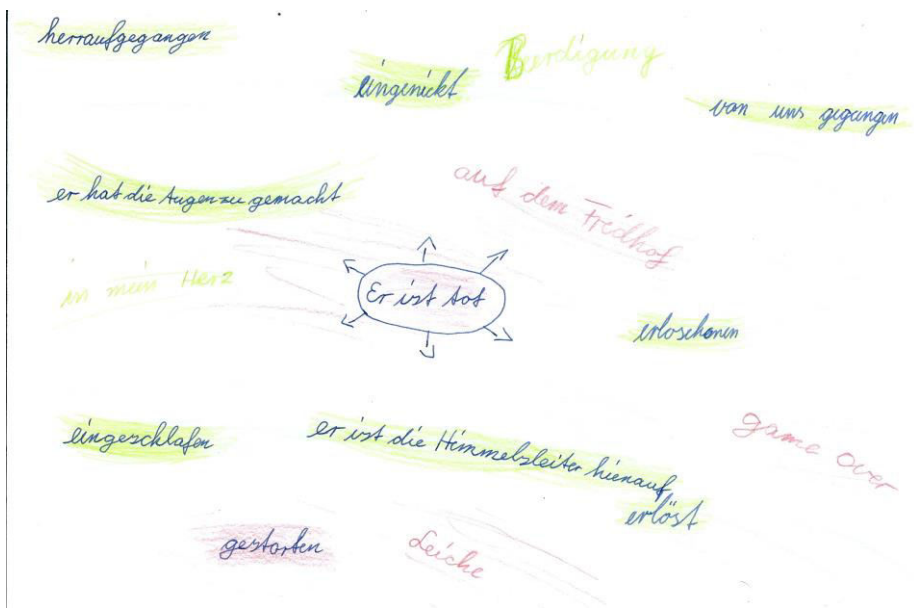 herraufgegangen
eingenickt
Berdigung
von uns gegangen
er hat die Augen zu gemacht
auf dem Fredhof
in mein Herz
Er ist tot
erloschonen
eingeschlafen
er ist die Himmelsleiter hienauf
game over
erlöst
gestorben
Leiche